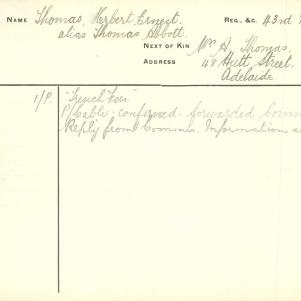 NAME Thomas, Herbert Ernest. REG. &C. 43rd
alias Thomas Abbott.
NEXT OF KIN Mrs A. Thomas.
ADDRESS 48 Hutt Street,
Adelaide
1/P. "Trench Fever"
P/Cable - confirmed - forwarded
Reply from Commis. Information